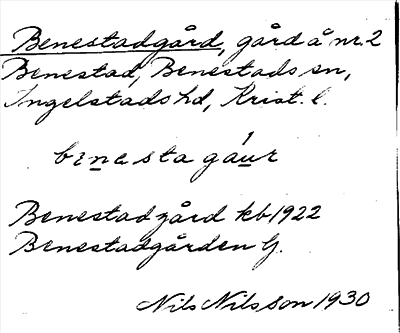 Benestadgård, gård å nr. 2
Benestad, Benestads sn,
Ingelstads hd, Krist. l.
benesta gáur
Benestad gård kb 1922
Benestadgården G.
Nils Nilsson 1930